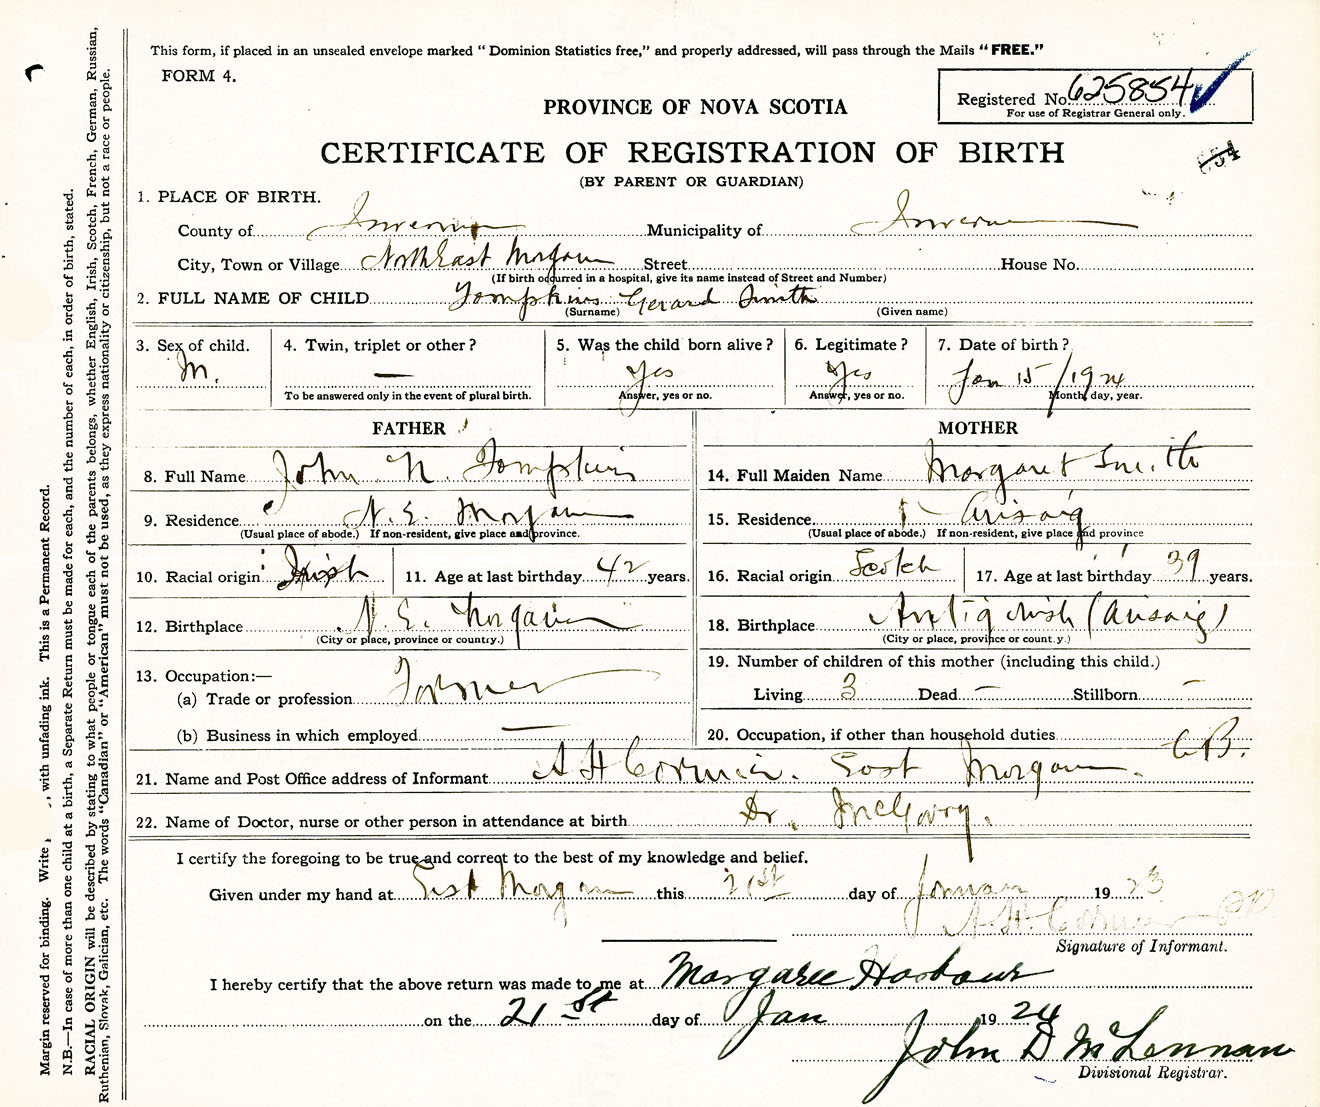 This form, if placed in an unsealed envelope marked “ Dominion Statistics free,” and properly addressed, will pass through the Mails “ FREE.”
FORM 4.
Registered No. 625854
For use of Registrar General only.
PROVINCE OF NOVA SCOTIA
CERTIFICATE OF REGISTRATION OF BIRTH
(BY PARENT OR GUARDIAN)
654
1. PLACE OF BIRTH.
County of Inverness Municipality of Inverness
City, Town or Village North East Margaree Street House No.
(If birth occurred in a hospital, give its name instead of Street and Number)
2. FULL NAME OF CHILD Tompkins Gerard Smith
(Surname) (Given name)
3. Sex of child. 4. Twin, triplet or other ? 5. Was the child born alive ? 6. Legitimate ? 7. Date of birth ?
M. — Yes Yes Jan 15/1924
To be answered only in the event of plural birth. Answer, yes or no. Answer, yes or no. Month, day, year.
FATHER MOTHER
8. Full Name John N. Tompkins 14. Full Maiden Name Margaret Smith
9. Residence N. E. Margaree 15. Residence Arisaig
(Usual place of abode.) If non-resident, give place and province. (Usual place of abode.) If non-resident, give place and province
10. Racial origin Irish 11. Age at last birthday 42 years. 16. Racial origin Scotch 17. Age at last birthday 39 years.
12. Birthplace N. E. Margaree 18. Birthplace Antigonish (Arisaig)
(City or place, province or country.) (City or place, province or count.y.)
13. Occupation:— 19. Number of children of this mother (including this child.)
(a) Trade or profession Farmer Living 3 Dead — Stillborn —
(b) Business in which employed — 20. Occupation, if other than household duties
21. Name and Post Office address of Informant A H Cormier. East Margaree. C.B.
22. Name of Doctor, nurse or other person in attendance at birth Dr. McGarry.
I certify the foregoing to be true and correct to the best of my knowledge and belief.
Given under my hand at East Margaree this 21st day of January 1923
A. H. Cormier
Signature of Informant.
I hereby certify that the above return was made to me at Margaree Harbour
on the 21st day of Jan 1924
John D McLennan
Divisional Registrar.
Margin reserved for binding. Write , with unfading ink. This is a Permanent Record.
N.B.—In case of more than one child at a birth, a Separate Return must be made for each, and the number of each, in order of birth, stated.
RACIAL ORIGIN will be described by stating to what people or tongue each of the parents belongs, whether English, Irish, Scotch, French, German, Russian,
Ruthenian, Slovak, Galician, etc. The words “Canadian” or “American” must not be used, as they express nationality or citizenship, but not a race or people.